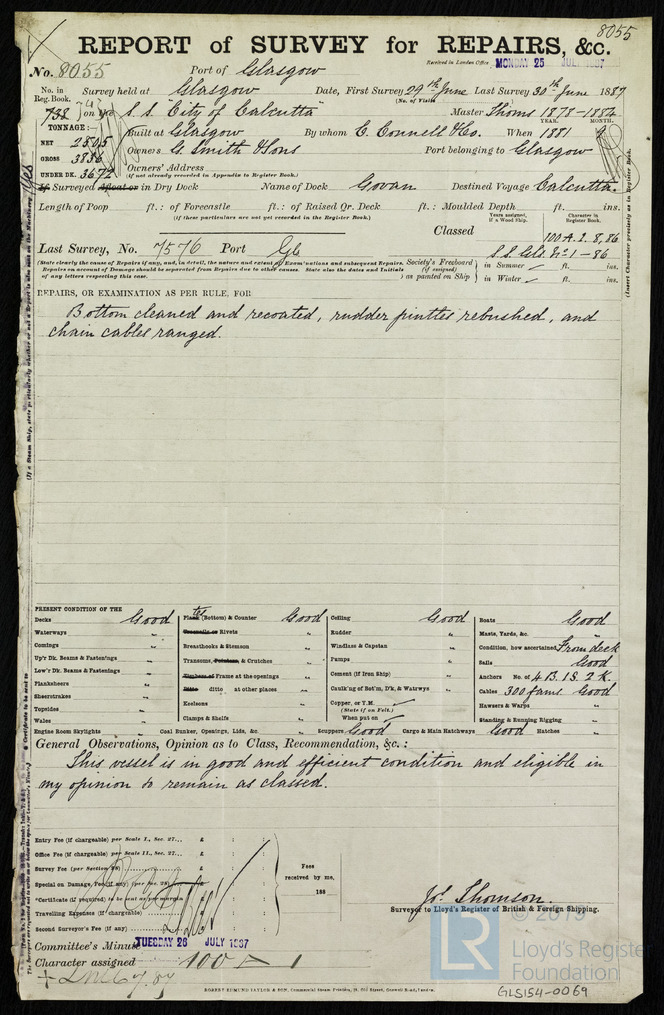 8055
REPORT of SURVEY for REPAIRS, &c.
Received in London Office MONDAY 25 JULY 1887
No. 8055 Port of Glasgow
No. in Reg. Book. Survey held at Glasgow Date, First Survey 29th June Last Survey 30th June 1887
(No. of Visits)
738 on the S.S. "City of Calcutta" Master Thoms 1878-1882
YEAR. MONTH.
TONNAGE:- Built at Glasgow By whom C. Connell & Co. When 1881
NET 2805
GROSS Owners G. Smith & Sons Port belonging to Glasgow
UNDER DK. 3672 Owners' Address
(If not already recorded in Appendix to Register Book.)
If Surveyed afloat or in Dry Dock Name of Dock Govan Destined Voyage Calcutta.
Length of Poop ft.: of Forecastle ft.: of Raised Qr. Deck ft.: Moulded Depth ft. ins.
(If these particulars are not yet recorded in the Register Book.)
Years assigned, if a Wood Ship. Character in Register Book.
Classed 100 A.1. 8,86
Last Survey, No. 7576 Port Gls S.S. Gls. No 1-86
(State clearly the cause of Repairs if any, and, in detail, the nature and extent of Examinations and subsequent Repairs.
Repairs on account of Damage should be separated from Repairs due to other causes. State also the dates and Initials
of any letters respecting this case.
Society's Freeboard (if assigned) as painted on Ship in Summer ft. ins.
in Winter ft. ins.
(Insert Character precisely as in Register Book.)
REPAIRS, OR EXAMINATION AS PER RULE, FOR
Bottom cleaned and recoated, rudder pintles rebushed, and
chain cables ranged.
PRESENT CONDITION OF THE
Decks Good
Waterways "
Comings "
Up'r Dk. Beams & Fastenings "
Low'r Dk. Beams & Fastenings "
Planksheers "
Sheerstrakes "
Topsides "
Wales "
Engine Room Skylights "
Plates (Bottom) & Counter Good
Treenails or Rivets "
Breasthooks & Stemson "
Transoms, Pointers, & Crutches "
Timbers of Frame at the openings "
Ditto ditto at other places "
Keelsons "
Clamps & Shelfs "
Coal Bunker, Openings, Lids, &c. "
Ceiling Good
Rudder "
Windlass & Capstan "
Pumps "
Cement (if Iron Ship) "
Caulk'ng of Bot'm, D'k, & Watrwys "
Copper, or Y.M.
(State if on Felt.)
When put on
Scuppers Good Cargo & Main Hatchways Good Hatches "
Boats Good
Masts, Yards, &c. "
Condition, how ascertained From deck
Sails Good
Anchors No. of 4 B. 1 S. 2 K.
Cables 300 fams Good
Hawsers & Warps "
Standing & Running Rigging "
General Observations, Opinion as to Class, Recommendation, &c.:
This vessel is in good and efficient condition and eligible in
my opinion to remain as classed.
Entry Fee (if chargeable) per Scale I., Sec. 27... £ : :
Office Fee (if chargeable) per Scale II., Sec. 27... £ : :
Survey Fee (per Section 28) £ : :
Special on Damage, Fee (if any) (per Sec. 28) £ : :
*Certificate (if required) to be sent as per margin
Travelling Expenses (if chargeable) £ : :
Second Surveyor's Fee (if any) £ : :
Fees received by me, 188
Jos. Thomson.
Surveyor to Lloyd's Register of British & Foreign Shipping.
Committee's Minute TUESDAY 26 JULY 1887
Character assigned 100 A 1
© 2019
LR
Lloyd's Register
Foundation
ROBERT EDMUND TAYLOR & SON, Commercial Steam Printers, 19, Old Street, Goswell Road, London.
GLS154-0069